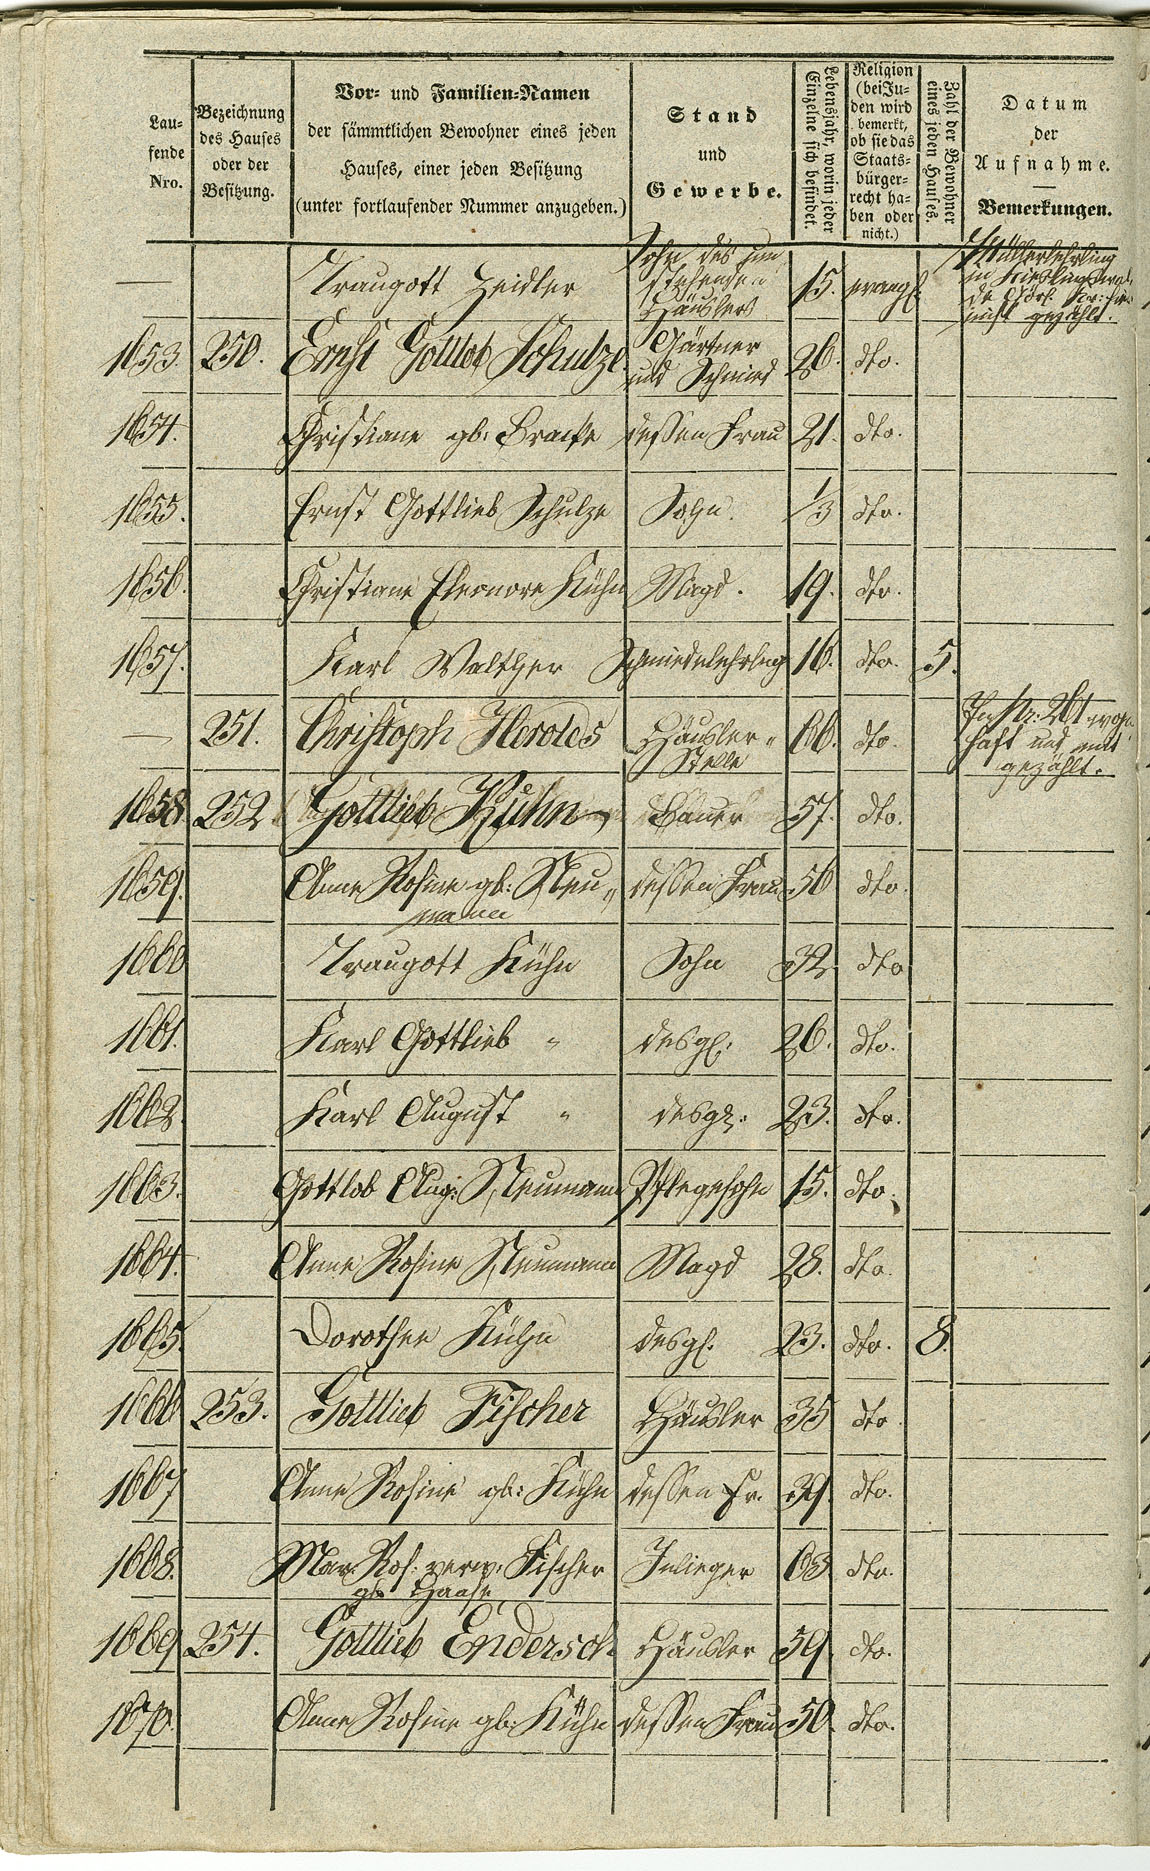 Lau-
fende
Nro.
Bezeichnung
des Hauses
oder der
Besitzung.
Vor- und Familien-Namen
der sämmtlichen Bewohner eines jeden
Hauses, einer jeden Besitzung
(unter fortlaufender Nummer anzugeben.)
Stand
und
Gewerbe.
Lebensjahr, worin jeder
Einzelne sich befindet.
Religion
(bei Ju-
den wird
bemerkt,
ob sie das
Staats-
bürger-
recht ha-
ben oder
nicht.)
Zahl der Bewohner
eines jeden Hauses.
Datum
der
Aufnahme.
Bemerkungen.
— Traugott Zeidler Sohn des
Häuslers 15. evangl.
Müllerlehrling
in
nicht gezählt.
1653. 250. Ernst Gottlob Schulze. Gärtner
und Schmied 26. dto.
1654. Christiane gb: dessen Frau 21. dto.
1655. Ernst Gottlieb Schulze Sohn. 1/3 dto.
1656. Christiane Eleonore Kühn Magd. 19. dto.
1657. Karl Walther Schmiedelehrlng 16. dto. 5.
— 251. Christoph Herolds Häusler-
Stelle 66. dto.
Nr: 261
haft und mit
gezählt.
1658. 252 Gottlieb Kühn Bauer 57. dto.
1659. Anne Rosine gb: Neu-
mann dessen Frau 56 dto.
1660 Traugott Kühn Sohn 32. dto
1661. Karl Gottlieb " desgl. 26. dto.
1662. Karl August " desgl. 23. dto.
1663. Gottlob Aug: Neumann Pflegesohn 15. dto.
1664. Anne Rosine Neumann Magd 28. dto.
1665. Dorothee Kühn desgl. 23. dto. 8.
1666 253. Gottlieb Fischer Häusler 35 dto
1667 Anne Rosine gb: Kühn dessen Fr. 39. dto.
1668. Mar. Ros: verw. Fischer
gb. Haase Inlieger 63. dto.
1669 254. Gottlieb Endersch Häusler 59. dto.
1670. Anne Rosine gb: Kühn dessen Frau 50. dto.